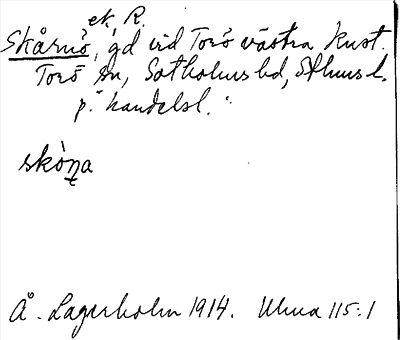 ek. R.
Skårnö, gd vid Torö västra kust.
Torö sn, Sotholms hd, Sthms l.
på handelsl.
skòṉa
Å. Lagerholm 1914. Ulma 115:1